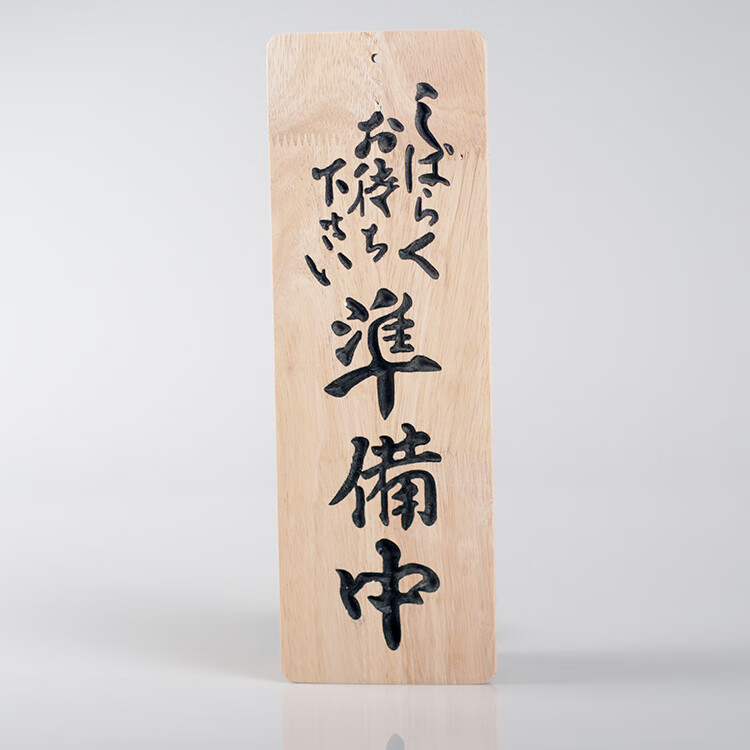 しばらく
お待ち
下さい
準備中